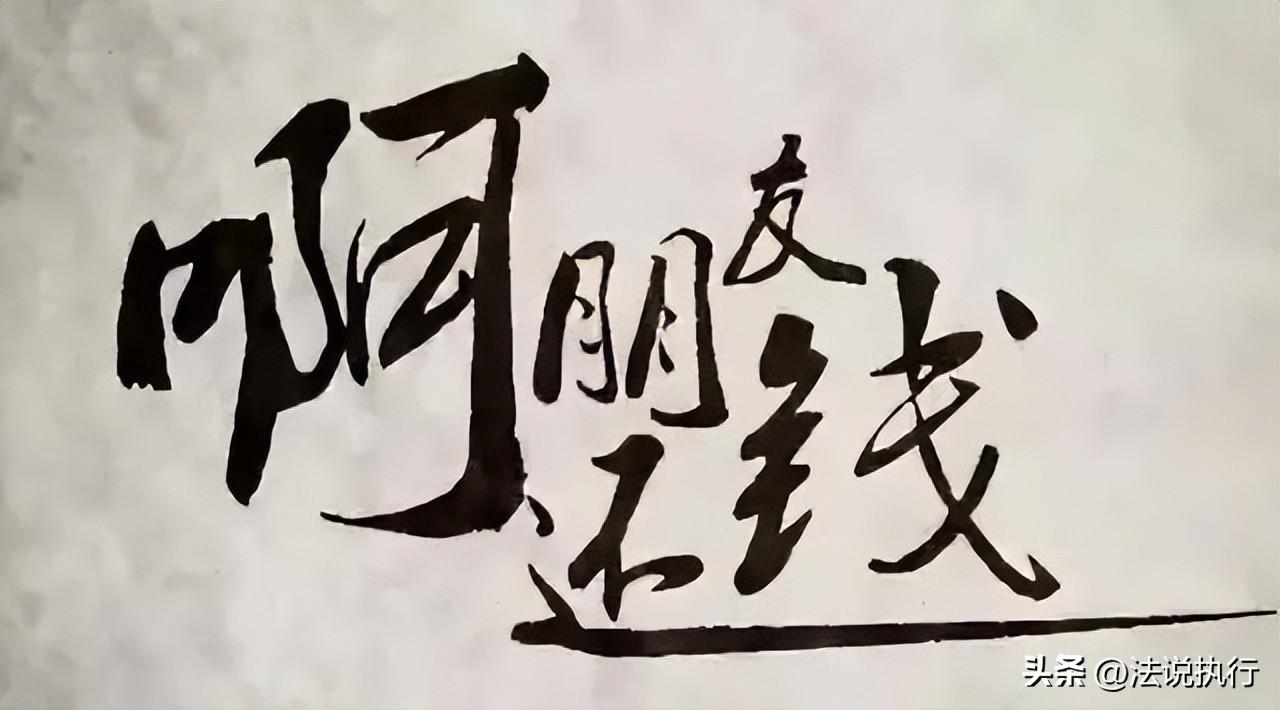 啊朋友还钱
头条 @法说执行